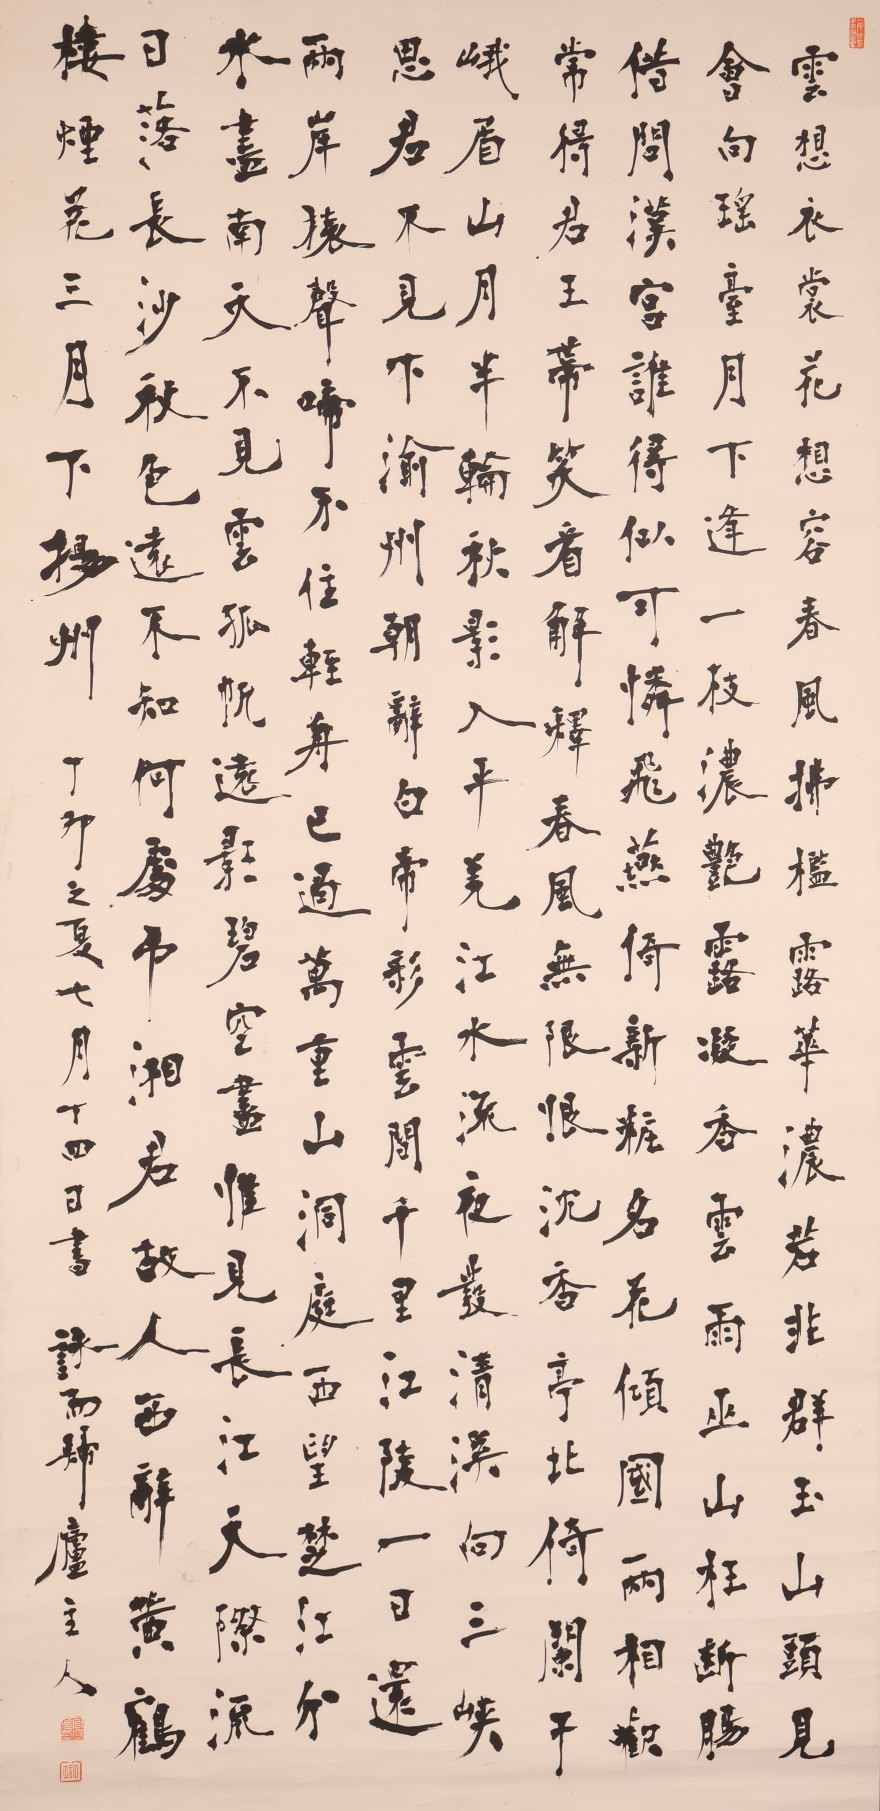 雲想衣裳花想容春風拂檻露華濃若非群玉山頭見
會向瑤臺月下逢一枝濃艷露凝香雲雨巫山枉斷腸
借問漢宮誰得似可憐飛燕倚新粧名花傾國兩相歡
常得君王帶笑看解釋春風無限恨沈香亭北倚闌干
峨眉山月半輪秋影入平羌江水流夜發清溪向三峽
思君不見下渝州朝辭白帝彩雲間千里江陵一日還
兩岸猿聲啼不住輕舟已過萬重山洞庭西望楚江分
水盡南天不見雲孤帆遠影碧空盡惟見長江天際流
日落長沙秋色遠不知何處弔湘君故人西辭黃鶴
樓煙花三月下揚州 丁卯之夏七月十四日書 詠而歸廬主人